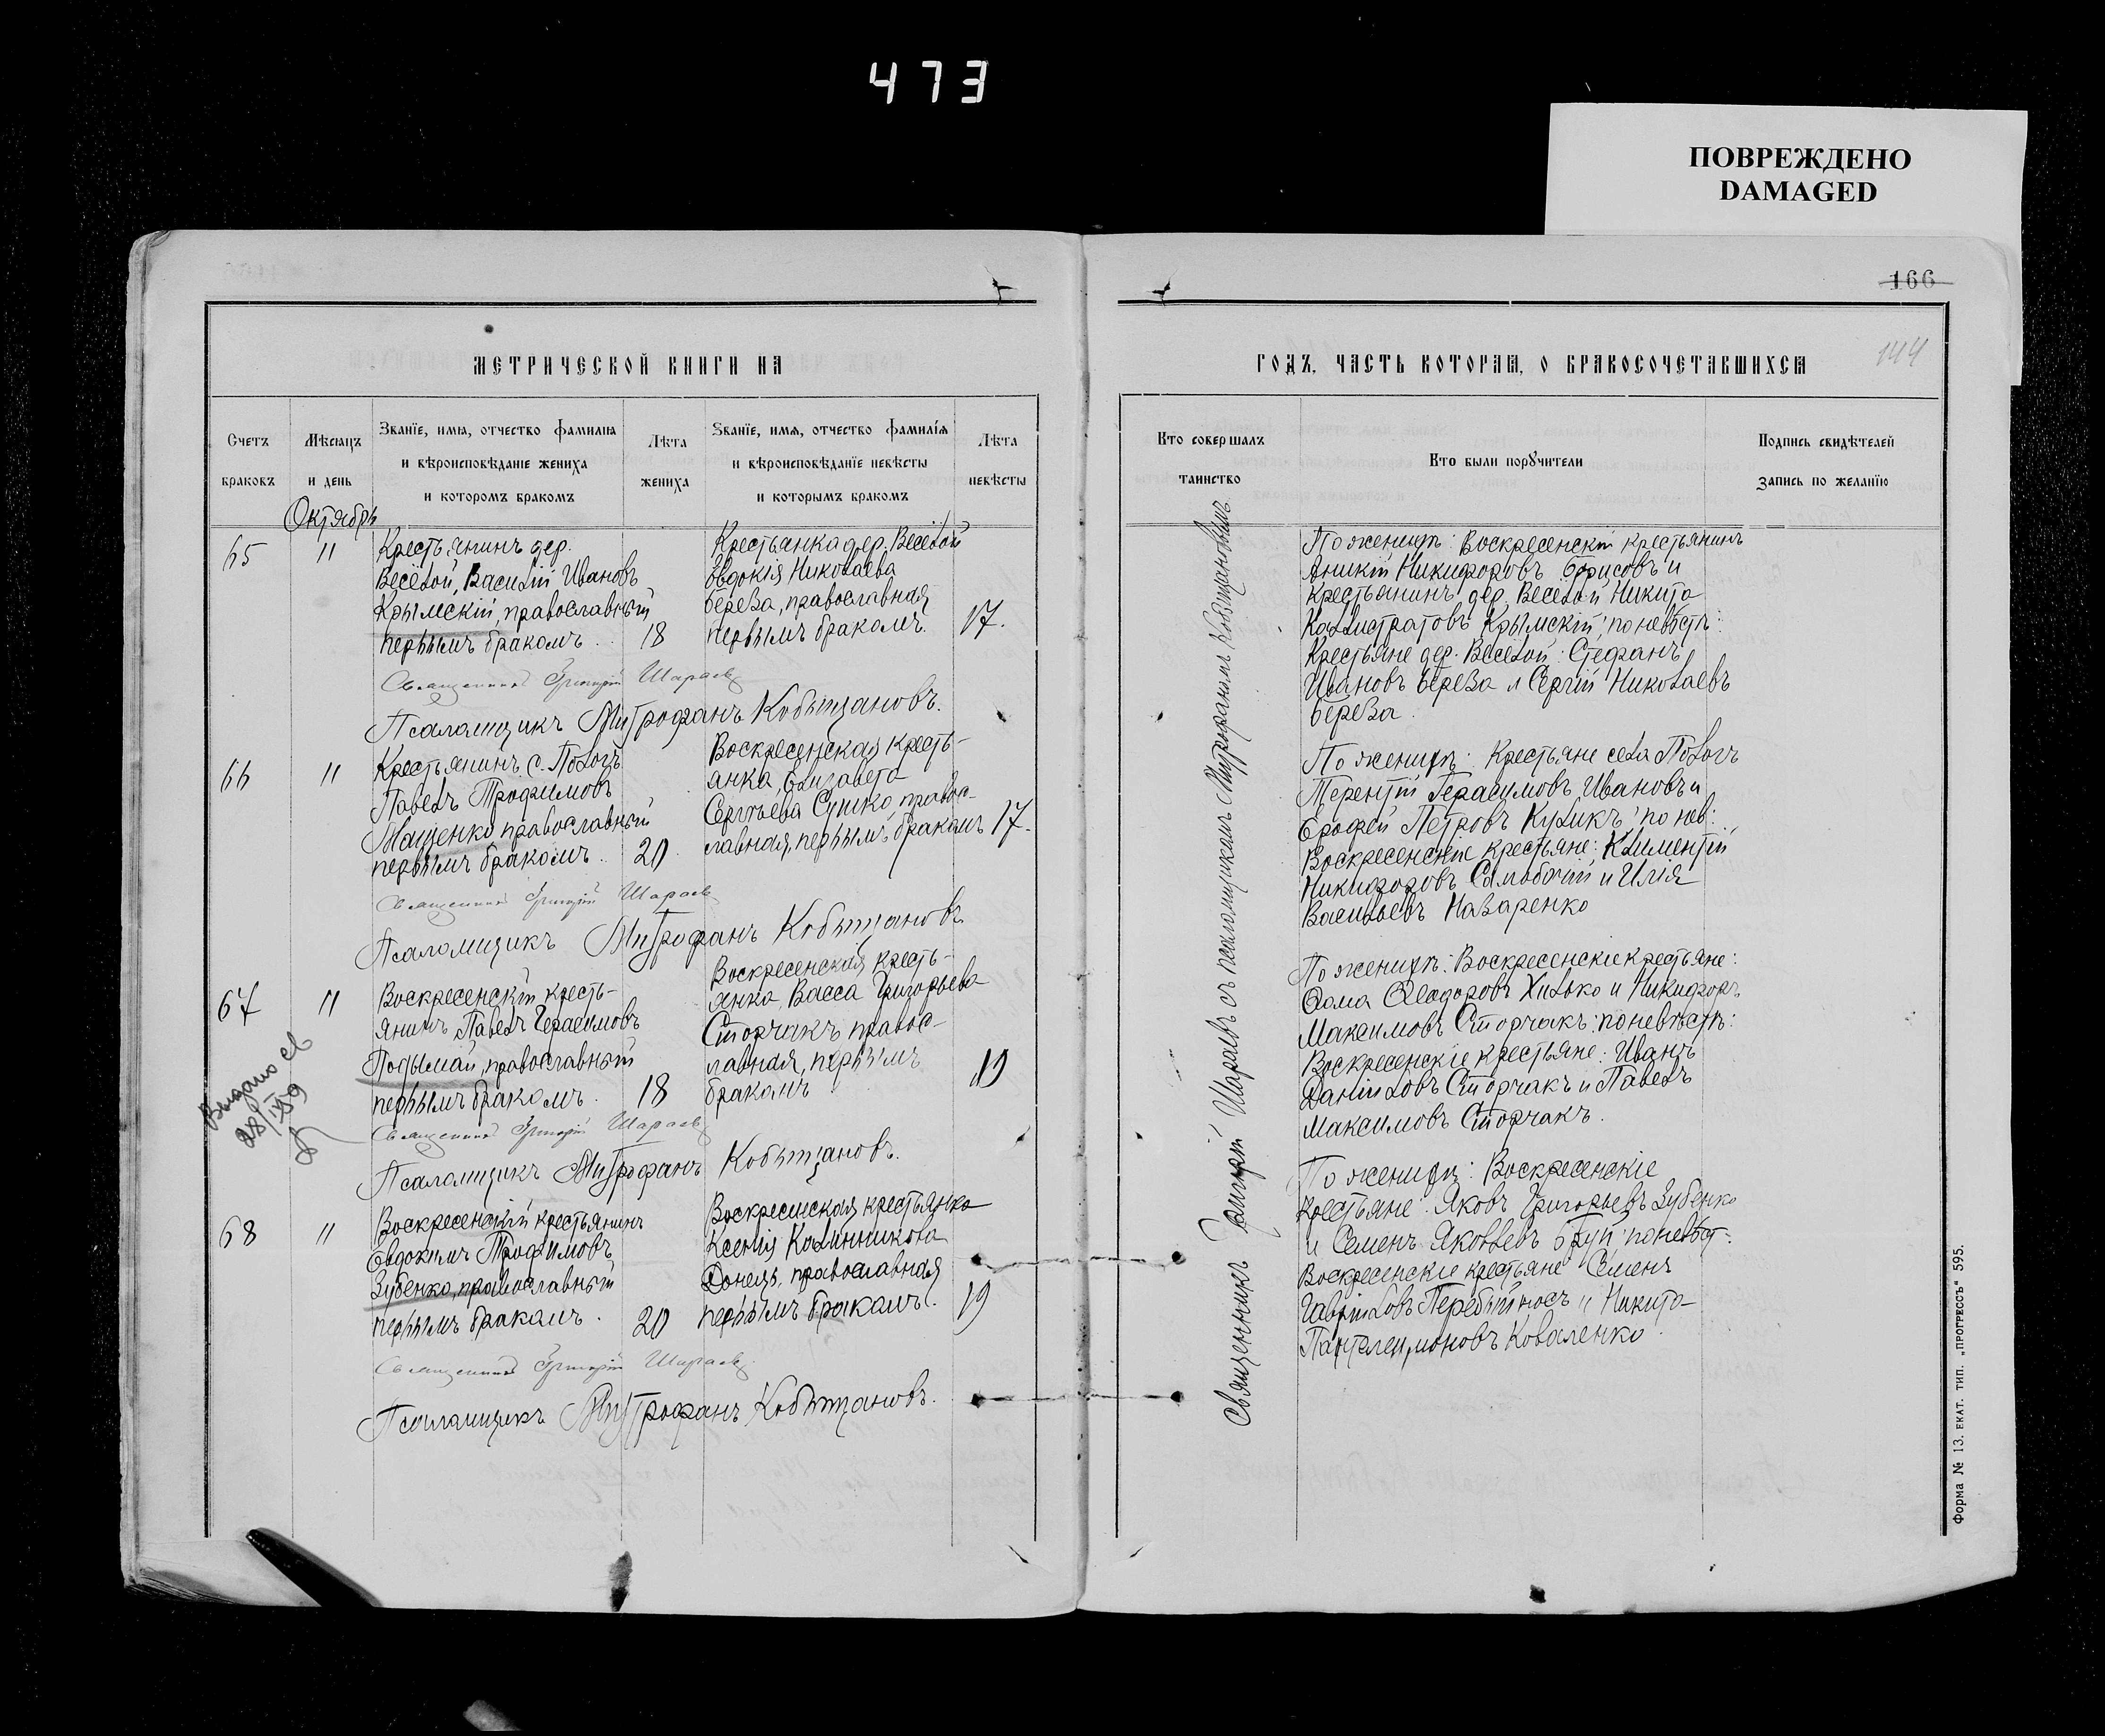 473
ПОВРЕЖДЕНО
DAMAGED
166
144
МЕТРИЧЕСКОЙ КНИГИ НА
Счетъ
браковъ
Мѣсяцъ
и день
Званіе, имя, отчество фамилія
и вѣроисповѣданіе жениха
и которомъ бракомъ
Лѣта
жениха
Званіе, имя, отчество фамилія
и вѣроисповѣданіе невѣсты
и которымъ бракомъ
Лѣта
невѣсты
Октябрь
65
11
Крестьянинъ дер.
Веселой, Василій Ивановъ
Крымскій, православный
первымъ бракомъ.
18
Крестьянка дер. Веселой
Евдокія Николаева
Береза, православная
первымъ бракомъ.
17.
Священникъ Григорій Шараевъ
Псаломщикъ Митрофанъ Кобыщановъ.
66
11
Крестьянинъ с. Пологъ
Павелъ Трофимовъ
Мащенко православный
первымъ бракомъ.
20
Воскресенская кресть-
янка, Елизавета
Сергѣева Сушко, правос-
лавная, первымъ бракомъ
17.
Священникъ Григорій Шараевъ
Псаломщикъ Митрофанъ Кобыщановъ
67
11
Воскресенскій кресть-
янинъ Павелъ Герасимовъ
Подымай, православный
первымъ бракомъ.
18
Воскресенская кресть-
янка Васса Григорьева
Сторчакъ правос-
лавная, первымъ
бракомъ
19
Выдано св
28/
Священникъ Григорій Шараевъ
Псаломщикъ Митрофанъ Кобыщановъ.
68
11
Воскресенскій крестьянинъ
Евдокимъ Трофимовъ
Зубенко, православный
первымъ бракомъ.
20
Воскресенская крестьянка
Ксенія Калинникова
Донецъ, православная
первымъ бракомъ.
19
Священникъ Григорій Шараевъ
Псаломщикъ Митрофанъ Кобыщановъ.
ГОДЪ, ЧАСТЬ КОТОРАЯ, О БРАКОСОЧЕТАВШИХСЯ
Кто совершалъ
таинство
Кто были поручители
Подпись свидѣтелей
запись по желанію
Священникъ Григорій Шараевъ съ псаломщикомъ Митрофаномъ Кобыщановымъ
По женихѣ: Воскресенскій крестьянинъ
Аникій Никифоровъ Борисовъ и
крестьянинъ дер. Веселой Никита
Каллистратовъ Крымскій; по невѣстѣ:
Крестьяне дер. Веселой: Стефанъ
Ивановъ Береза и Сергій Николаевъ
Береза.
По женихѣ: Крестьяне села Пологъ
Терентій Герасимовъ Ивановъ и
Ерофей Петровъ Куликъ; по нев:
Воскресенскіе крестьяне: Климентій
Никифоровъ Самобочій и Илія
Васильевъ Назаренко
По женихѣ: Воскресенскіе крестьяне:
Ѳома Ѳеодоровъ Хилько и Никифоръ
Максимовъ Сторчакъ; по невѣстѣ:
Воскресенскіе крестьяне: Иванъ
Даніиловъ Сторчакъ и Павелъ
Максимовъ Сторчакъ.
По женихѣ: Воскресенскіе
крестьяне: Яковъ Григорьевъ Зубенко
и Семенъ Яковлевъ Бруй; по невѣст:
Воскресенскіе крестьяне Семенъ
Гавріиловъ Перебыйносъ и Никита
Пантелеимоновъ Коваленко.
Форма № 13. ЕКАТ. ТИП. „ПРОГРЕССЪ" 595.